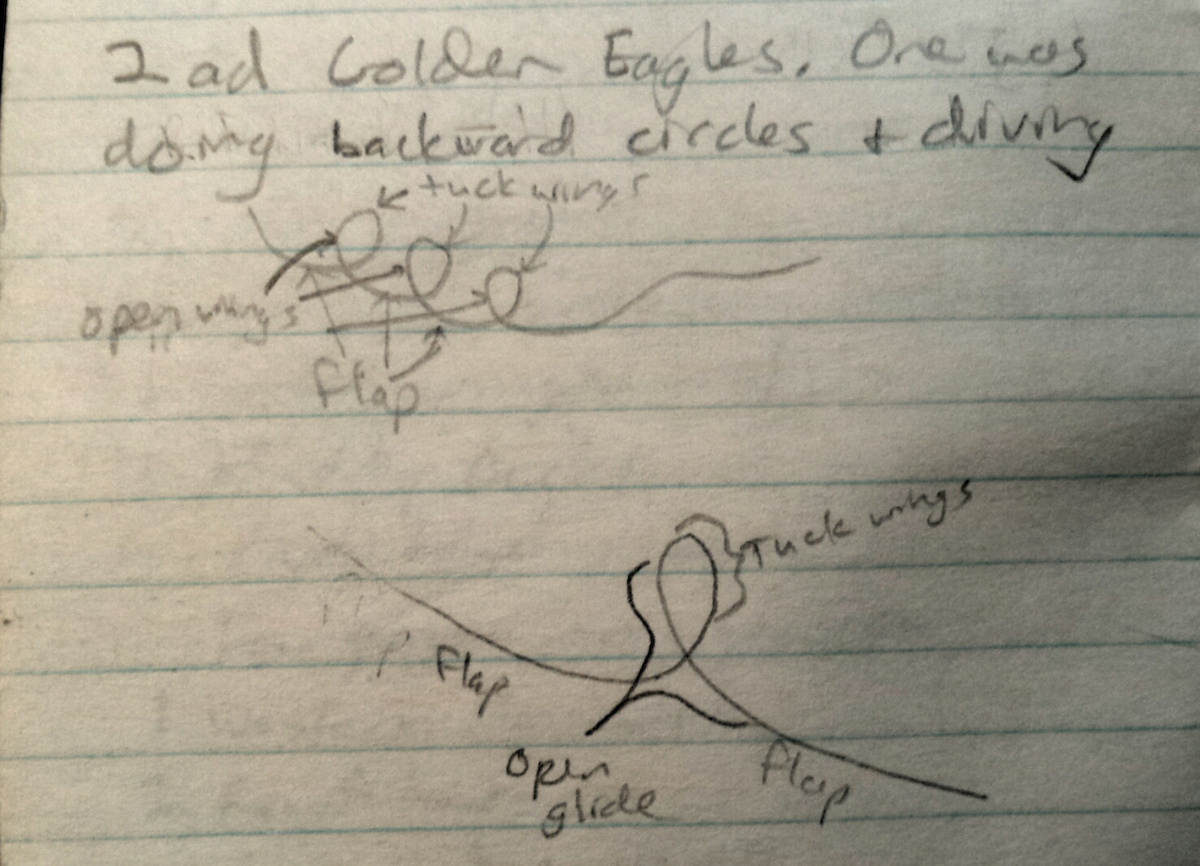 2 ad Golden Eagles. One was
doing backward circles + driving
tuck wings
open wings
flap
Tuck wings
Flap
Open
glide
flap